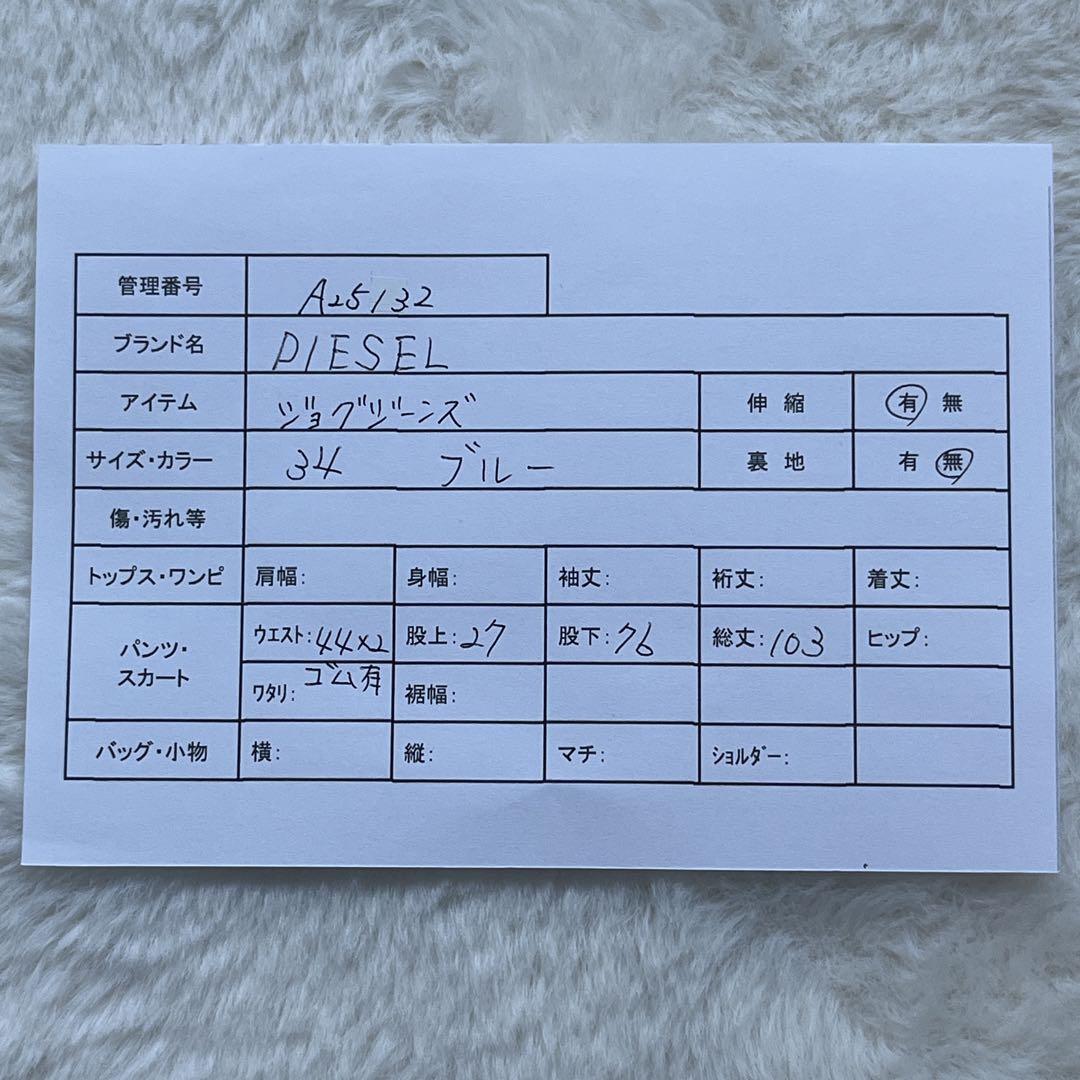 管理番号 A25132
ブランド名 DIESEL
アイテム ジョグジーンズ 伸縮 有 無
サイズ・カラー 34 ブルー 裏地 有 無
傷・汚れ等
トップス・ワンピ 肩幅: 身幅: 袖丈: 裄丈: 着丈:
パンツ・スカート ウエスト:44×2 股上:27 股下:76 総丈:103 ヒップ:
ゴム有
ワタリ: 裾幅:
バッグ・小物 横: 縦: マチ: ショルダー: